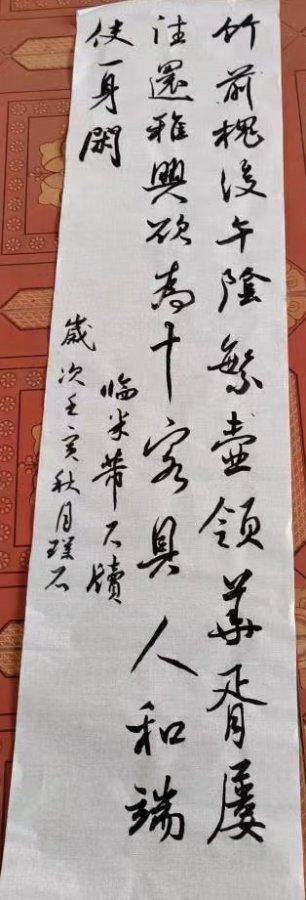 竹前槐後午陰繁壺領華胥屡
往還雅興欲為十客具人和端
使一身閑
临米芾尺牘
歲次壬寅秋月璞石